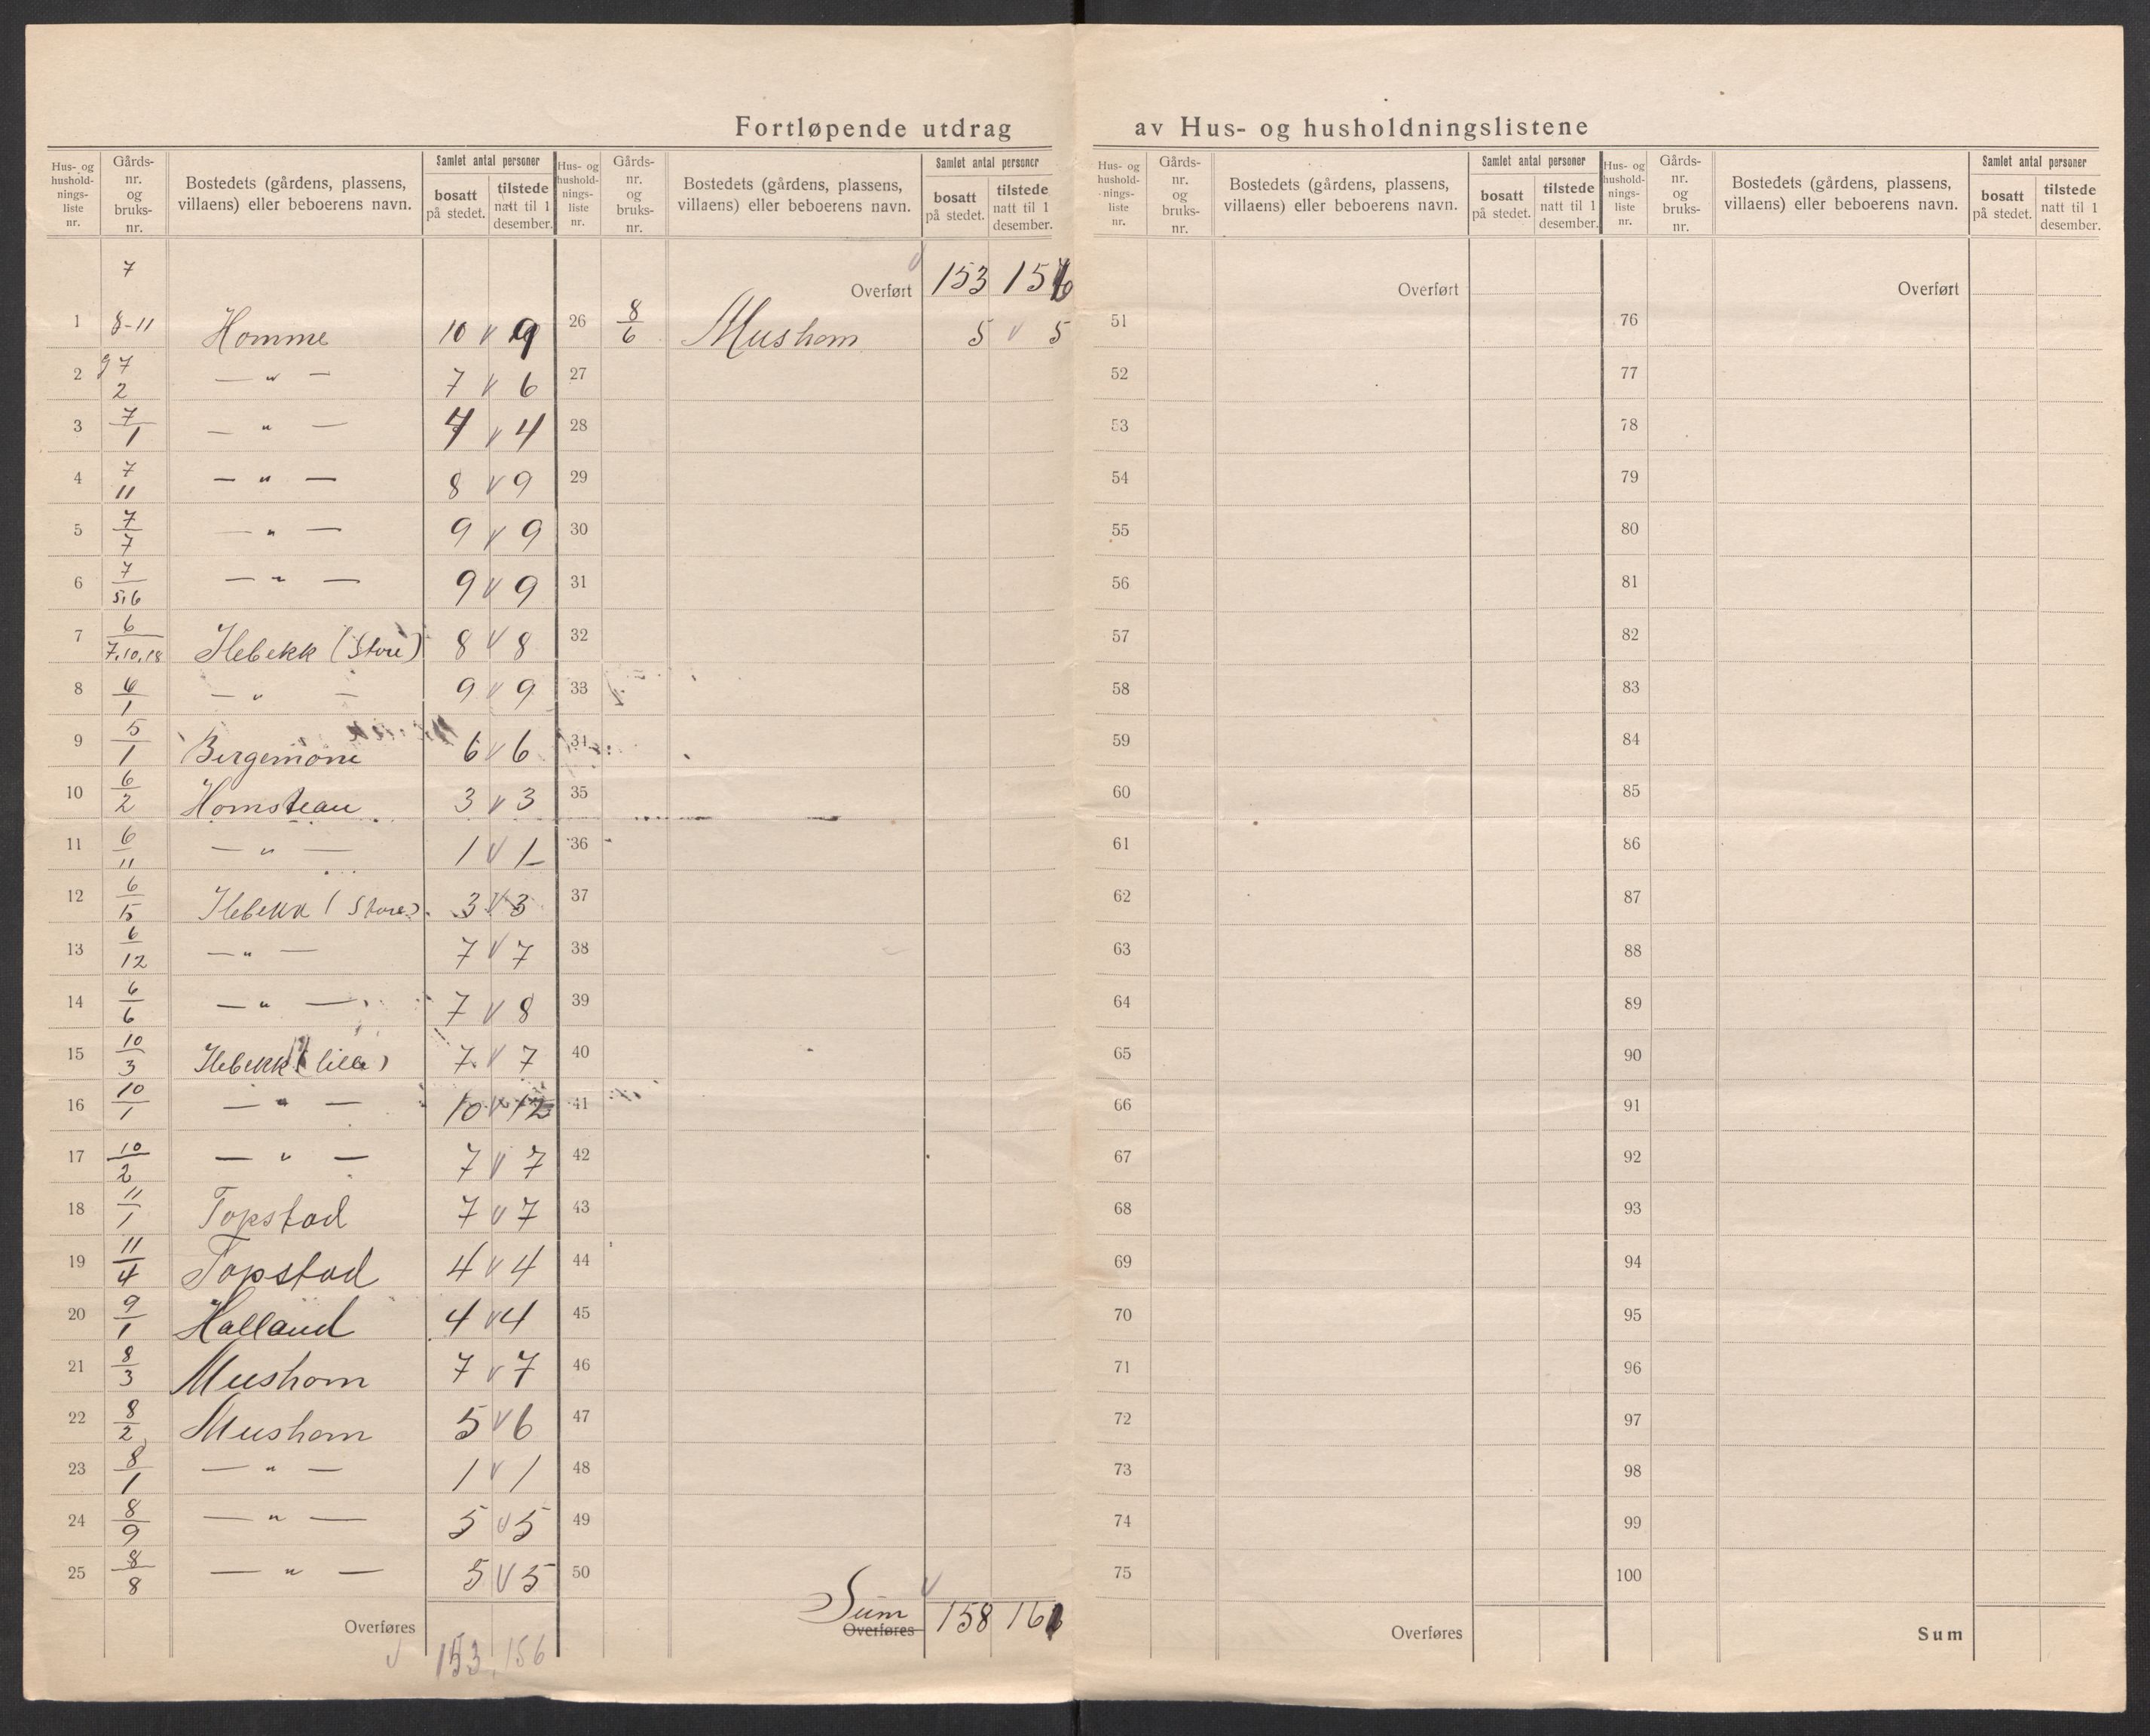 Fortløpende utdrag av Hus- og husholdningslistene
Hus- og husholdnings-liste nr. | Gårds-nr. og bruks-nr. | Bostedets (gårdens, plassens, villaens) eller beboerens navn. | Samlet antal personer | bosatt på stedet. | tilstede natt til 1 desember.
1 | 7 8-11 | Homme | 10 v 9
2 | 7 2 | — " — | 7 v 6
3 | 7/1 | — " — | 4 v 4
4 | 7 11 | — " — | 8 v 9
5 | 7/7 | — " — | 9 v 9
6 | 7/5,6 | — " — | 9 v 9
7 | 6/7,10,18 | Ilebekk (Store) | 8 v 8
8 | 6/1 | — " — | 9 v 9
9 | 5/1 | Bergemone | 6 v 6
10 | 6/2 | Homstean | 3 v 3
11 | 6/11 | — " — | 1 v 1
12 | 6/15 | Ilebekk (Store) | 3 v 3
13 | 6/12 | — " — | 7 v 7
14 | 6/6 | — " — | 7 v 8
15 | 10/3 | Ilebekk (lille) | 7 v 7
16 | 10/1 | — " — | 10 v 12
17 | 10/2 | — " — | 7 v 7
18 | 11/1 | Topstad | 7 v 7
19 | 11/4 | Topstad | 4 v 4
20 | 9/1 | Halland | 4 v 4
21 | 8/3 | Mushom | 7 v 7
22 | 8/2 | Mushom | 5 v 6
23 | 8/1 | — " — | 1 v 1
24 | 8/9 | — " — | 5 v 5
25 | 8/8 | — " — | 5 v 5
Overføres
v 153 156
Hus- og husholdnings-liste nr. | Gårds-nr. og bruks-nr. | Bostedets (gårdens, plassens, villaens) eller beboerens navn. | Samlet antal personer | bosatt på stedet. | tilstede natt til 1 desember.
Overført | v 153 156
26 | 8/6 | Mushom | 5 v 5
27
28
29
30
31
32
33
34
35
36
37
38
39
40
41
42
43
44
45
46
47
48
49
50
Sum v 158 161
Overføres
Hus- og husholdnings-liste nr. | Gårds-nr. og bruks-nr. | Bostedets (gårdens, plassens, villaens) eller beboerens navn. | Samlet antal personer | bosatt på stedet. | tilstede natt til 1 desember.
Overført
51
52
53
54
55
56
57
58
59
60
61
62
63
64
65
66
67
68
69
70
71
72
73
74
75
Overføres
Hus- og husholdnings-liste nr. | Gårds-nr. og bruks-nr. | Bostedets (gårdens, plassens, villaens) eller beboerens navn. | Samlet antal personer | bosatt på stedet. | tilstede natt til 1 desember.
Overført
76
77
78
79
80
81
82
83
84
85
86
87
88
89
90
91
92
93
94
95
96
97
98
99
100
Sum